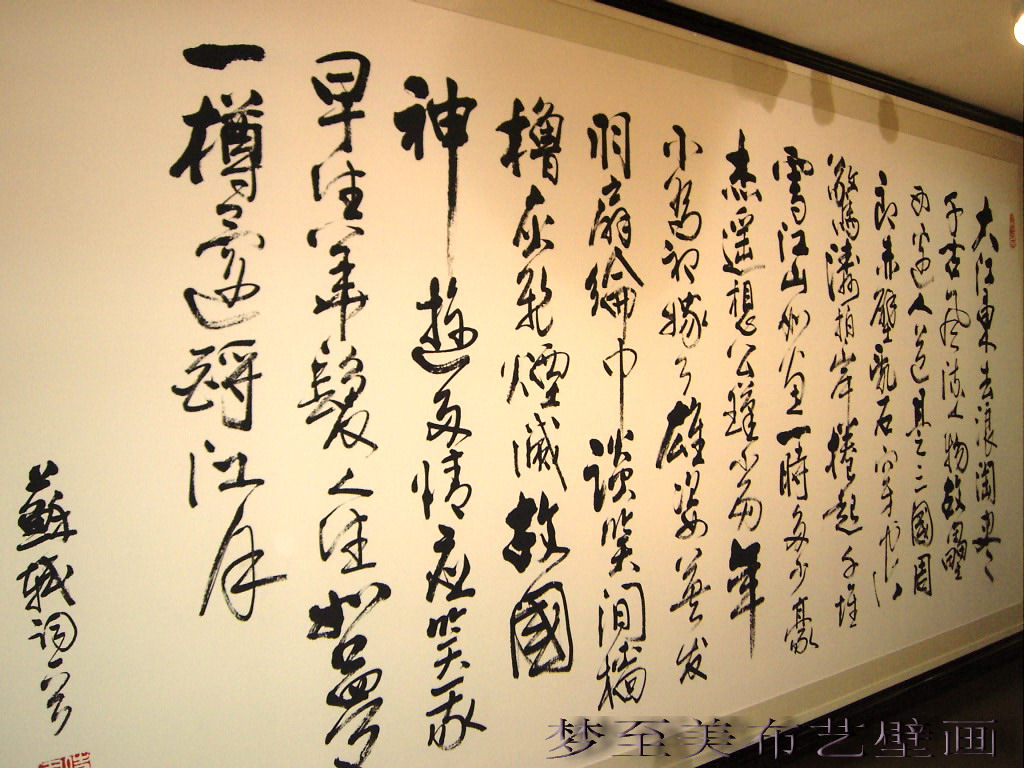 大江東去浪淘尽
千古風流人物故壘
西邊人道是三國周
郎赤壁亂石穿空
驚濤拍岸捲起千堆
雪江山如畫一時多少豪
杰遥想公瑾當年
小喬初嫁了雄姿英发
羽扇綸巾談笑間檣
櫓灰飛煙滅故國
神遊多情應笑我
早生華髮人生如夢
一樽還酹江月
蘇軾词一首
梦至美布艺壁画